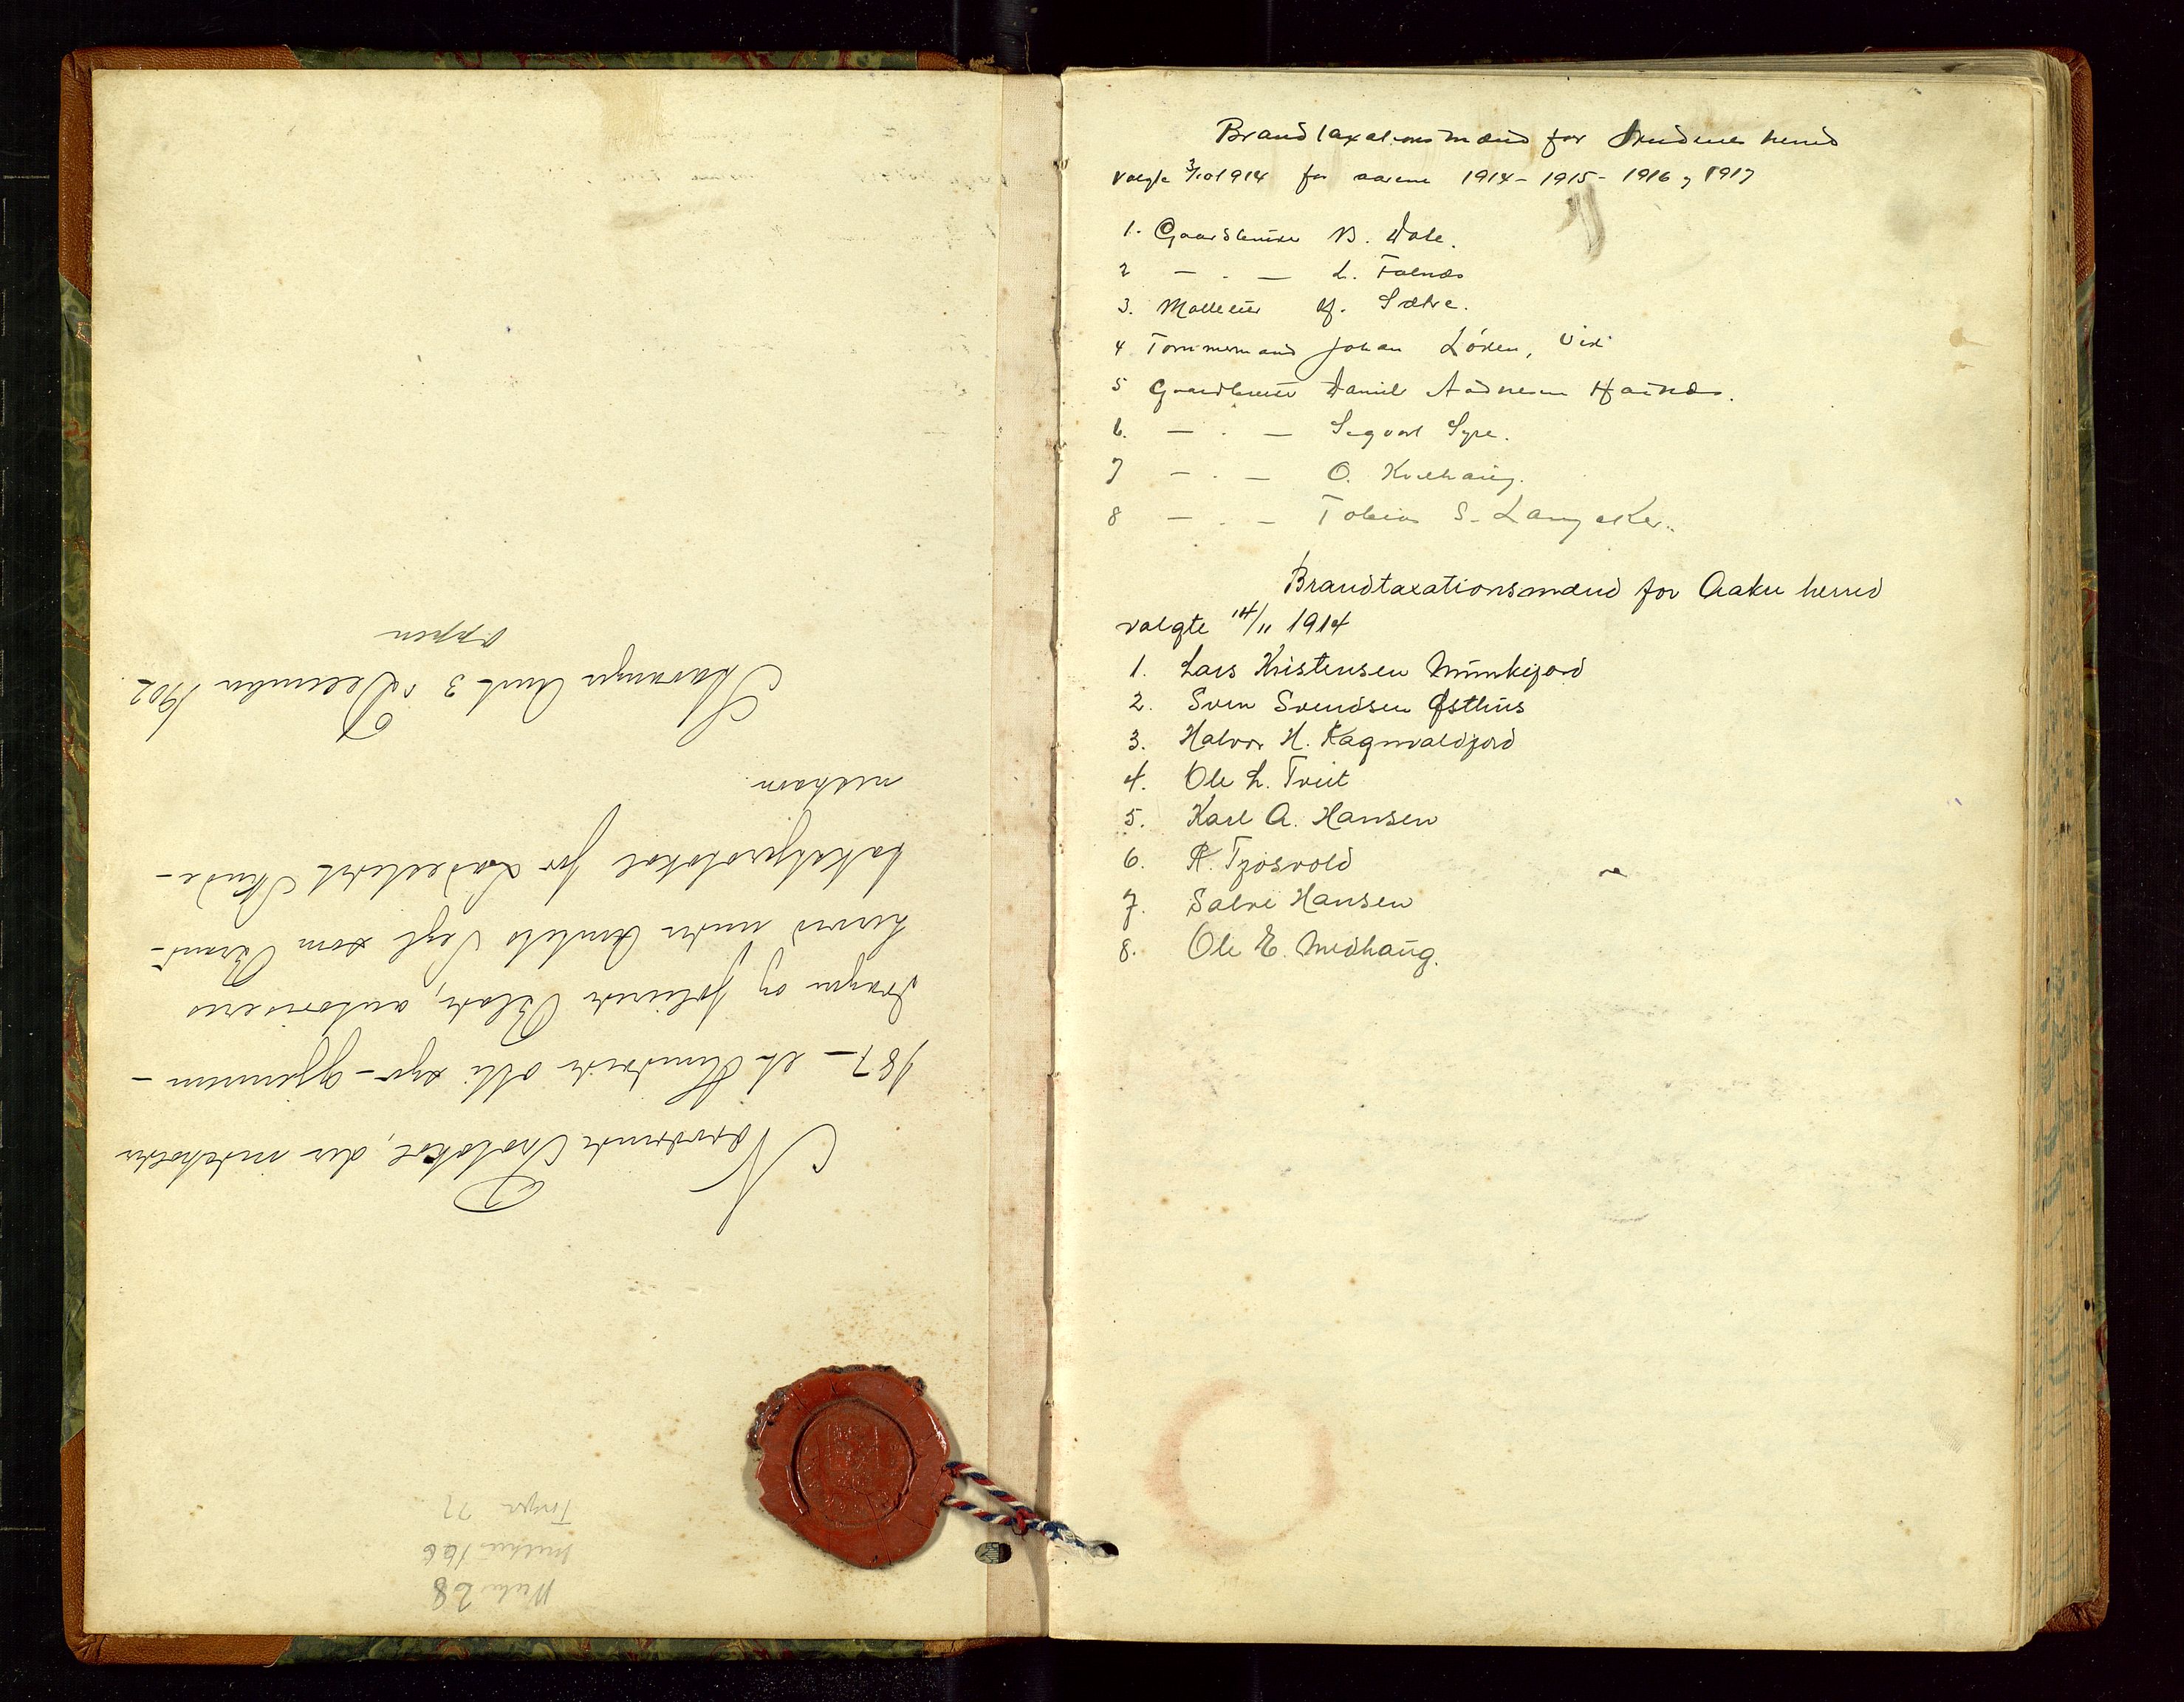 Nærværende Protokol, der indeholder
187 - et Hundrede otti syv - gjennem-
dragne og folierede Blade, autoriseres
herved under Amtets Segl som Brand-
takstprotokol for Ladestedet Skude-
neshavn.
Stavanger Amt 3 December 1902.
Brandtaxationsmænd for Skudenes herred
valgte 3/10 1914 for aarene 1914 - 1915 - 1916 og 1917
1. Gaardbruker B. Dale.
2 - . - L. Falnæs
3. Møller Sætre.
4 Tømmermand Johan
5 Gaardbruker Daniel Aadnesen
6. - . - Sigvart Syre.
7 - . - O. Kvilhaug.
8 - . - Tobias S. Langaker.
Brandtaxationsmænd for Aakre herred
valgte 14/11 1914
1. Lars Kristensen Munkejord
2. Sven Svendsen Østhus
3. Halvor H. Ragnvaldjord
4. Ole L. Tveit
5. Karl A. Hansen
6. R. Tjøsvold
7. Salve Hansen
8. Ole E. Medhaug.